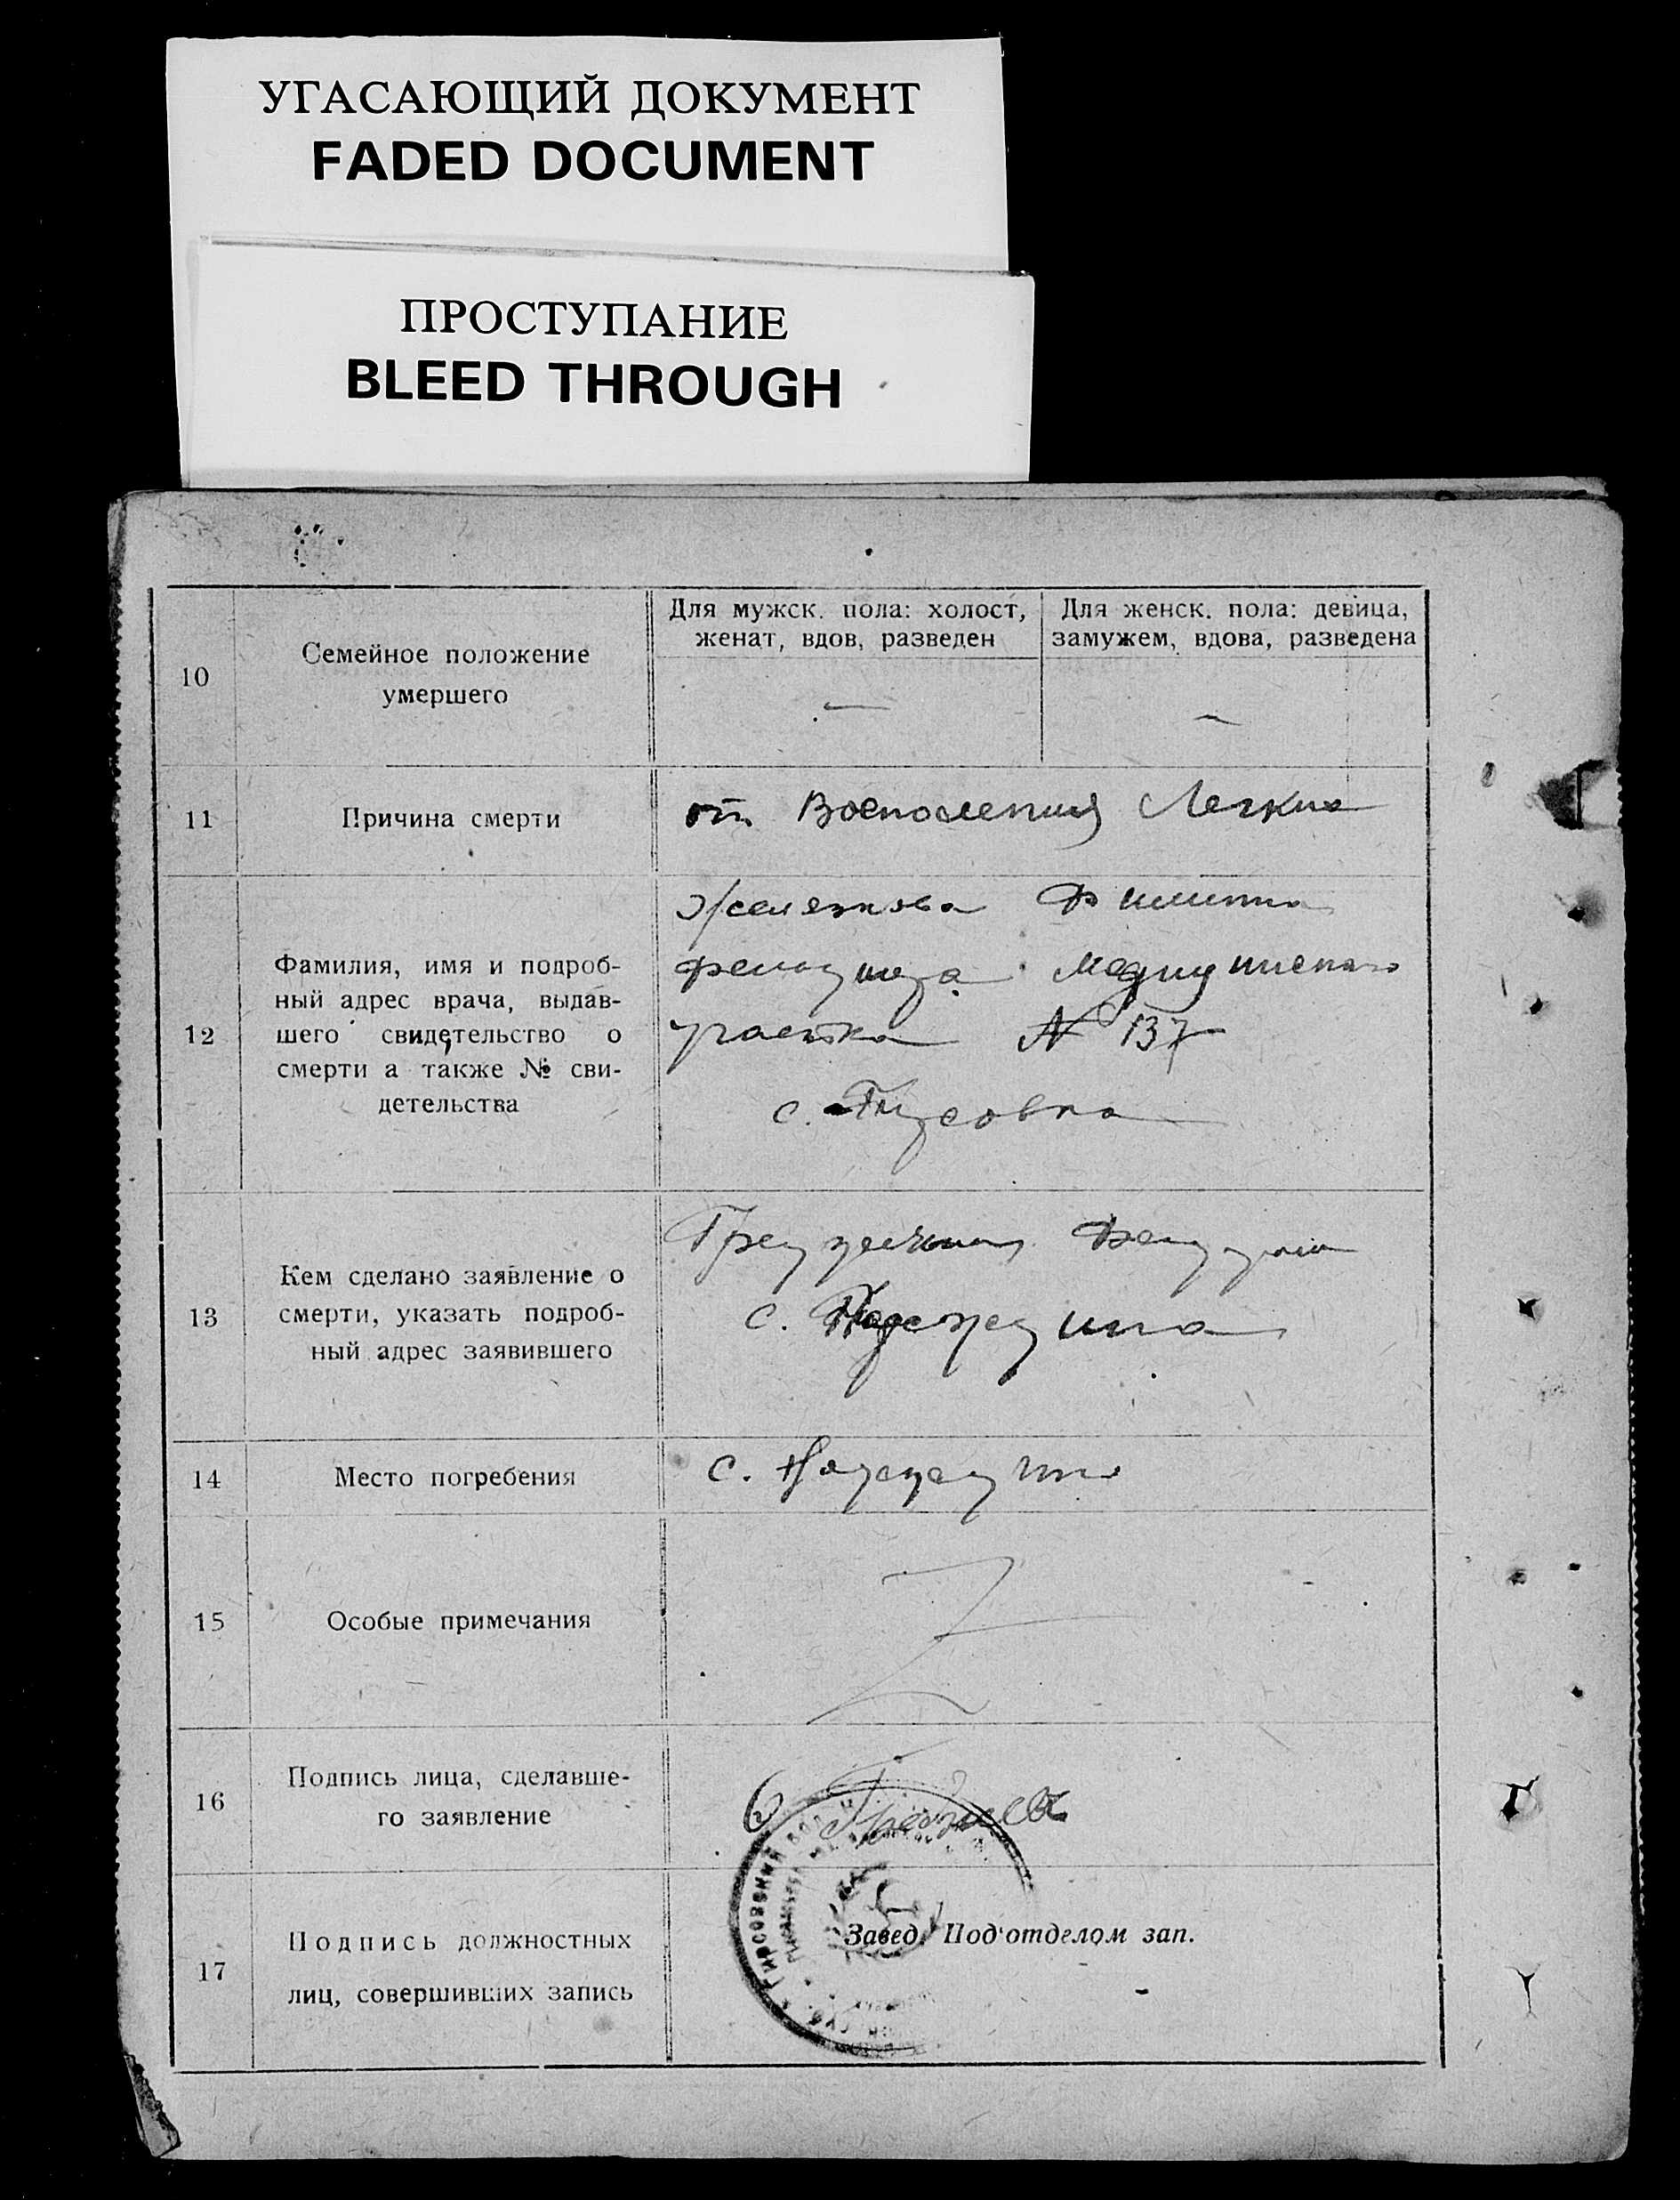 УГАСАЮЩИЙ ДОКУМЕНТ
FADED DOCUMENT
ПРОСТУПАНИЕ
BLEED THROUGH
10
Семейное положение
умершего
Для мужск. пола: холост,
женат, вдов, разведен
—
Для женск. пола: девица,
замужем, вдова, разведена
—
11
Причина смерти
от Воспаления Легких
12
Фамилия, имя и подроб-
ный адрес врача, выдав-
шего свидетельство о
смерти а также № сви-
детельства
фельдшера Медицинского
участка № 137
с. Гирсовка
13
Кем сделано заявление о
смерти, указать подроб-
ный адрес заявившего
с. Надеждина
14
Место погребения
с. Надеждина
15
Особые примечания
16
Подпись лица, сделавше-
го заявление
17
Подпись должностных
лиц, совершивших запись
Завед. Под'отделом зап.